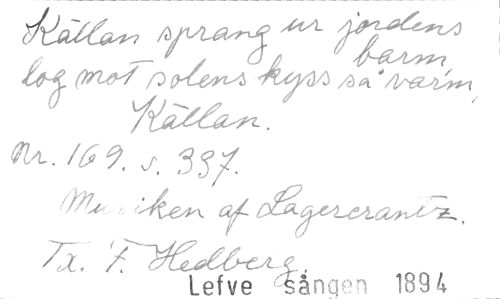 Källan sprang ur jordens
barm,
log mot solens kyss så varm,
Källan.
Nr. 169. s. 337.
Musiken af Lagercrantz.
Tx. F. Hedberg.
Lefve sången 1894